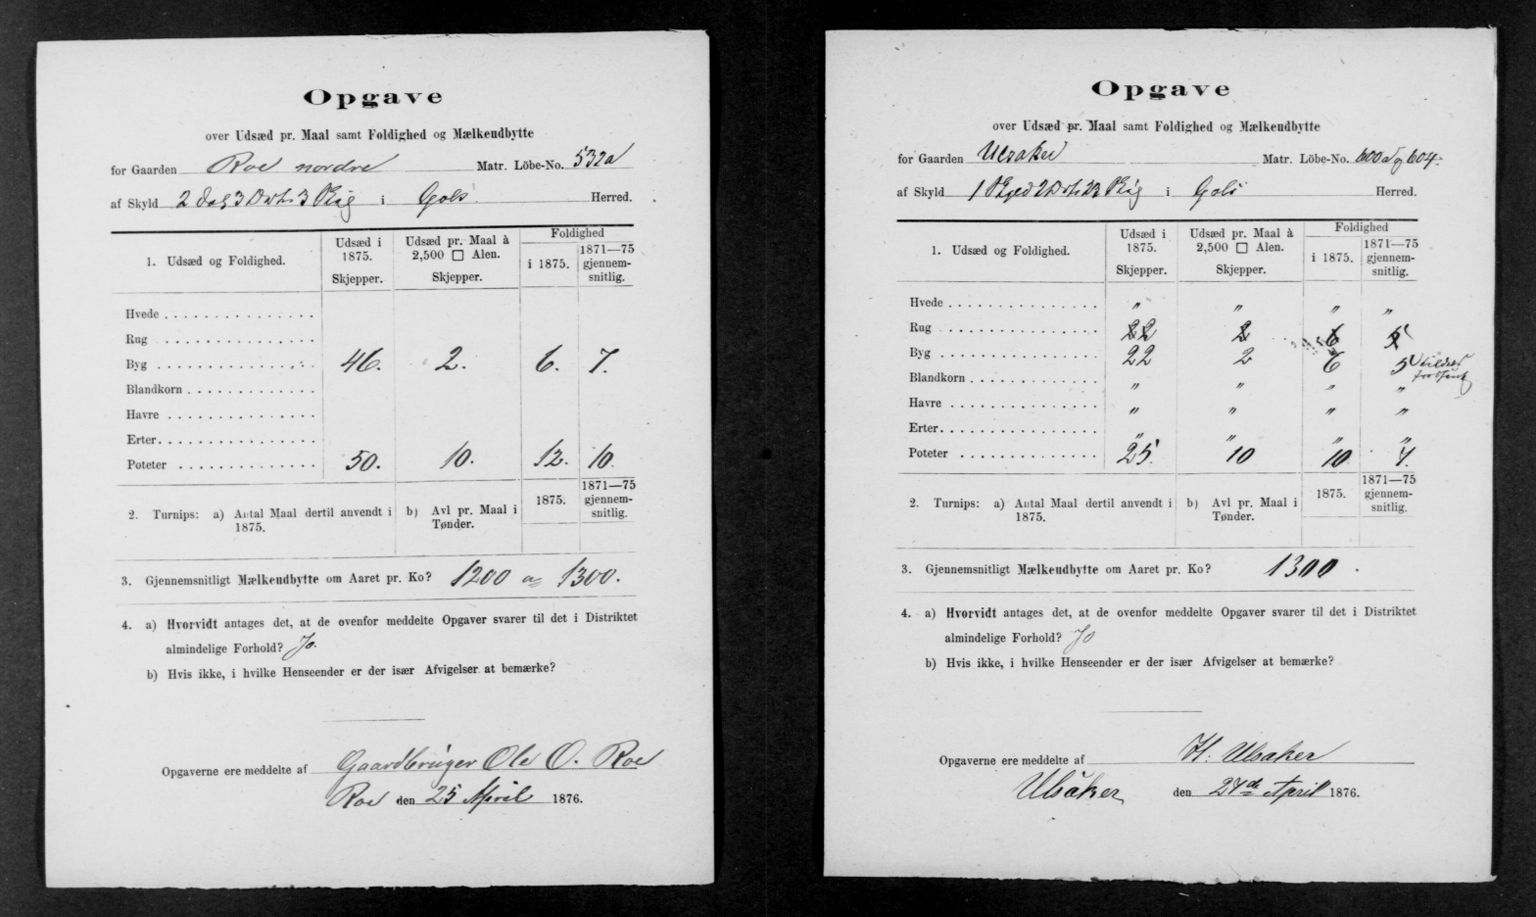 Opgave
over Udsæd pr. Maal samt Foldighed og Mælkeudbytte
for Gaarden Roe nordre Matr. Löbe-No. 532a
af Skyld 2 Dal 3 Ort 3 Skig i Gols Herred.
1. Udsæd og Foldighed.
Udsæd i 1875. Skjepper.
Udsæd pr. Maal à 2,500 □ Alen. Skjepper.
Foldighed
i 1875.
1871—75 gjennemsnitlig.
Hvede
Rug
Byg 46. 2. 6. 7.
Blandkorn
Havre
Erter
Poteter 50. 10. 12. 10.
2. Turnips: a) Antal Maal dertil anvendt i 1875.
b) Avl pr. Maal i Tønder.
1875.
1871—75 gjennemsnitlig.
3. Gjennemsnitligt Mælkeudbytte om Aaret pr. Ko? 1200 a 1300.
4. a) Hvorvidt antages det, at de ovenfor meddelte Opgaver svarer til det i Distriktet
almindelige Forhold? Jo.
b) Hvis ikke, i hvilke Henseender er der især Afvigelser at bemærke?
Opgaverne ere meddelte af Gaardbruger Ole O. Roe
Roe den 25 April 1876.
Opgave
over Udsæd pr. Maal samt Foldighed og Mælkeudbytte
for Gaarden Ulsaker Matr. Löbe-No. 600a og 604.
af Skyld 1 Skyld 2 Ort 23 Skig i Gols Herred.
1. Udsæd og Foldighed.
Udsæd i 1875. Skjepper.
Udsæd pr. Maal à 2,500 □ Alen. Skjepper.
Foldighed
i 1875.
1871—75 gjennemsnitlig.
Hvede " " " "
Rug 22 2 6 5
Byg 22 2 6 5
Blandkorn " " " "
Havre " " " "
Erter " " " "
Poteter 25. 10 10 7.
2. Turnips: a) Antal Maal dertil anvendt i 1875.
b) Avl pr. Maal i Tønder.
1875.
1871—75 gjennemsnitlig.
3. Gjennemsnitligt Mælkeudbytte om Aaret pr. Ko? 1300.
4. a) Hvorvidt antages det, at de ovenfor meddelte Opgaver svarer til det i Distriktet
almindelige Forhold? Jo
b) Hvis ikke, i hvilke Henseender er der især Afvigelser at bemærke?
Opgaverne ere meddelte af H. Ulsaker
Ulsåker den 27de April 1876.